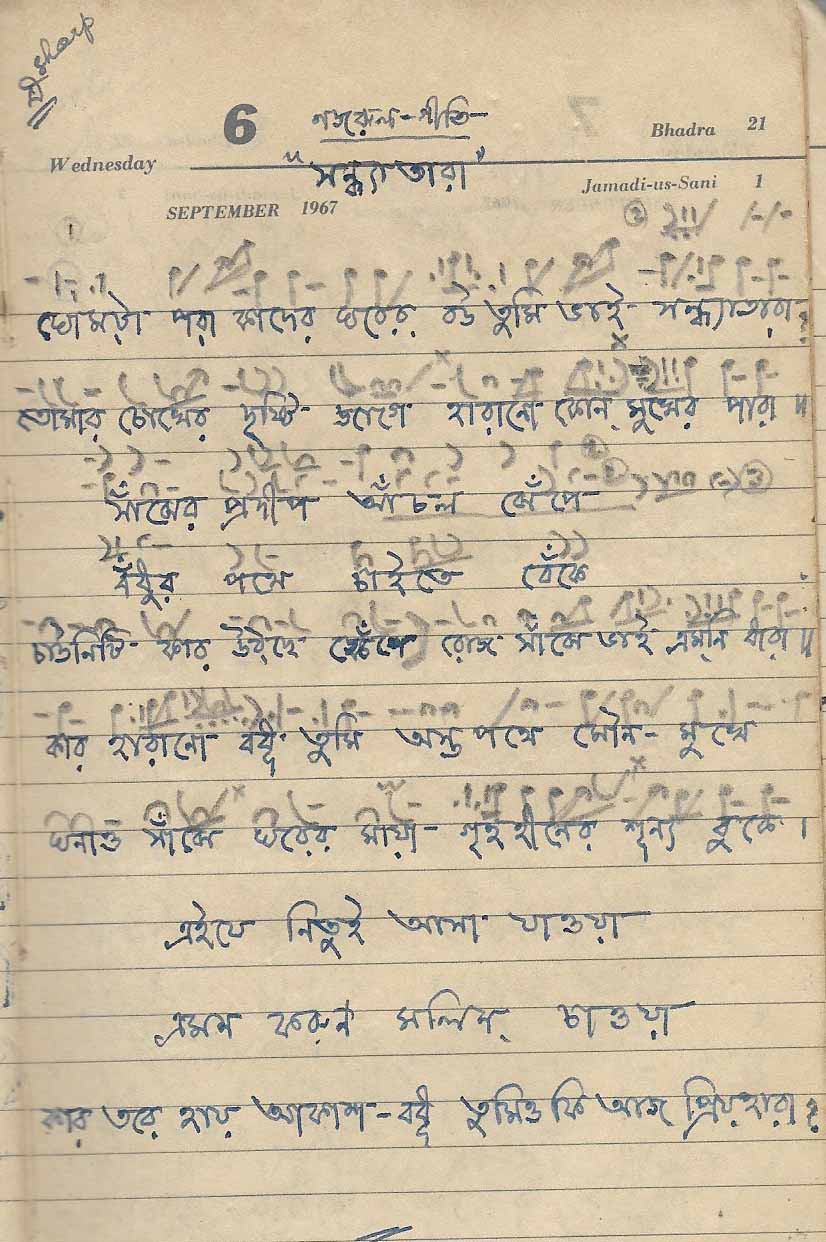 জি sharp
6 নজরুল-গীতি
Bhadra 21
Wednesday
"সন্ধ্যাতারা"
Jamadi-us-Sani 1
SEPTEMBER 1967
ঘোমটা পরা কাদের ঘরের বউ তুমি ভাই সন্ধ্যাতারা?
তোমার চোখের দৃষ্টি জাগে হারানো কোন্ মুখের পারা॥
সাঁঝের প্রদীপ আঁচল ঝেঁপে
বঁধুর পথে চাইতে বেঁকে
চাউনিটি কার উঠছে কেঁপে রোজ সাঁঝে ভাই এমনি ধারা॥
কার হারানো বধূ তুমি অস্ত পথে মৌন-মুখে
ঘনাও সাঁঝে ঘরের মায়া গৃহহীনের শূন্য বুকে।
এইযে নিতুই আসা যাওয়া
এমন করুন মলিন্ চাওয়া
কার তরে হায় আকাশ-বধূ তুমিও কি আজ প্রিয়হারা?